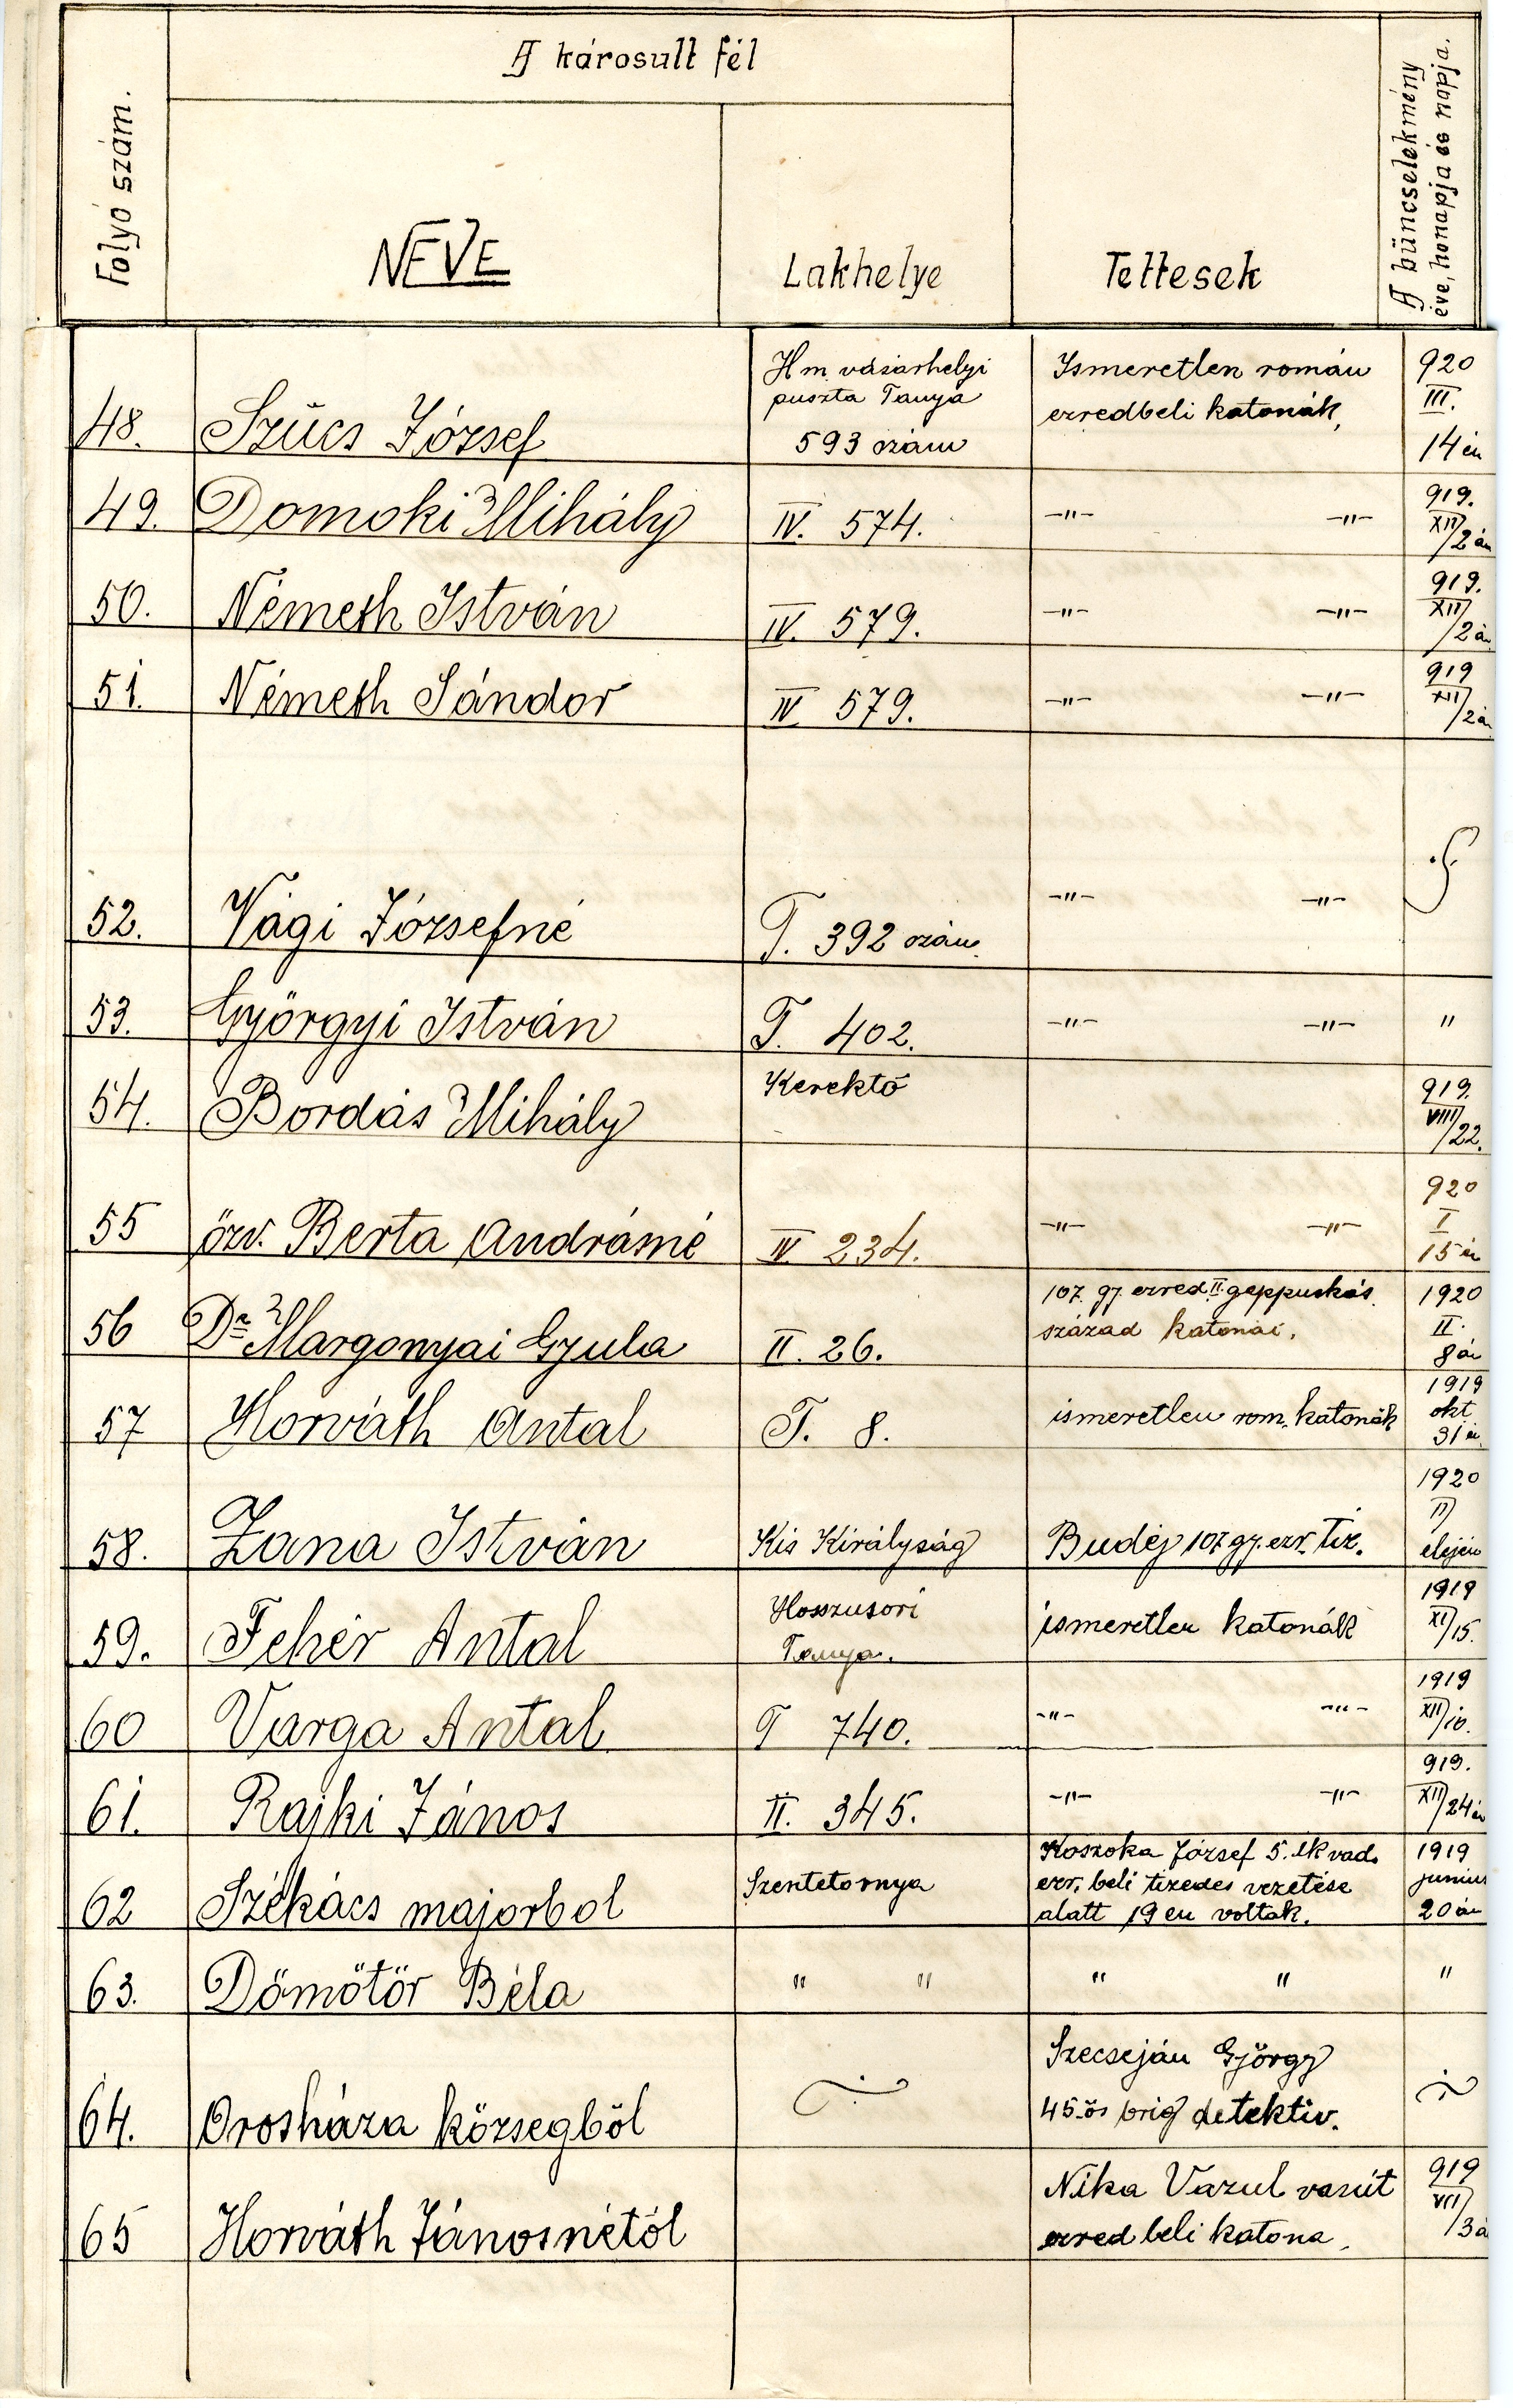 A károsult fél
Folyó szám.
NEVE
Lakhelye
Tettesek
A büncselekmény
éve, honapja és napja.
48. Szücs József
Hm. vásárhelyi
puszta Tanya
593 szám
Ismeretlen román
ezredbeli katonák,
920
III.
14 én
49. Domoki Mihály IV. 574. –"– –"–
919.
XII/2 án
50. Németh István IV. 579. –"– –"–
919.
XII/2 á
51. Németh Sándor IV 579. –"– –"–
919
XII/2 á
52. Vági Józsefné T. 392 szám. –"– –"–
53. Györgyi István T. 402. –"– –"– "
54. Bordás Mihály Kerektó
919.
VIII/22.
55 özv. Berta Andrásné IV 234. –"– –"–
920
I
15 én
56 Dr Margonyai Gyula II. 26.
107. gy. ezred II. geppuskás
század katonái.
1920
II.
8 án
57 Horváth Antal T. 8. ismeretlen rom. katonák
1919
okt
31 én
58. Zana István Kis Királyság Budéj 107 gy. ezr. tiz.
1920
II
elején
59. Fehér Antal
Hosszusori
Tanya.
ismeretlen katonák
1919
XI/15.
60 Varga Antal T 740. –"– –"–
1919
XII/10.
61. Rajki János II. 345. –"– –"–
919.
XII/24 én
62 Székács majorbol Szentetornya
Koszoka József 5. ik vad.
ezr. beli tizedes vezetése
alatt 19 en voltak.
1919
junius
20 án
63. Dömötör Béla " " " " "
64. Orosháza községböl
Szecseján György
45-ös brig detektiv.
65 Horváth Jánosnétól
Nika Vazul vasút
ezred beli katona.
919
VII/3 á